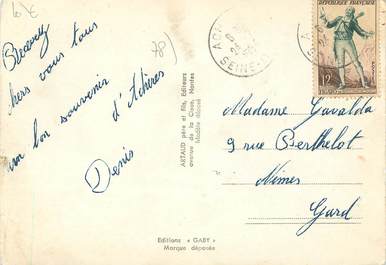 6 €
78)
Recevez
chers vous tous
un bon souvenir
d'Achères
Denis
ARTAUD père et fils, Editeurs
avenue de la Close, Nantes
Modèle déposé
Editions « GABY »
Marque déposée
ACH
SEINE
REPUBLIQUE FRANÇAISE
12
Madame Gavalda
9 rue Berthelot
Nîmes
Gard